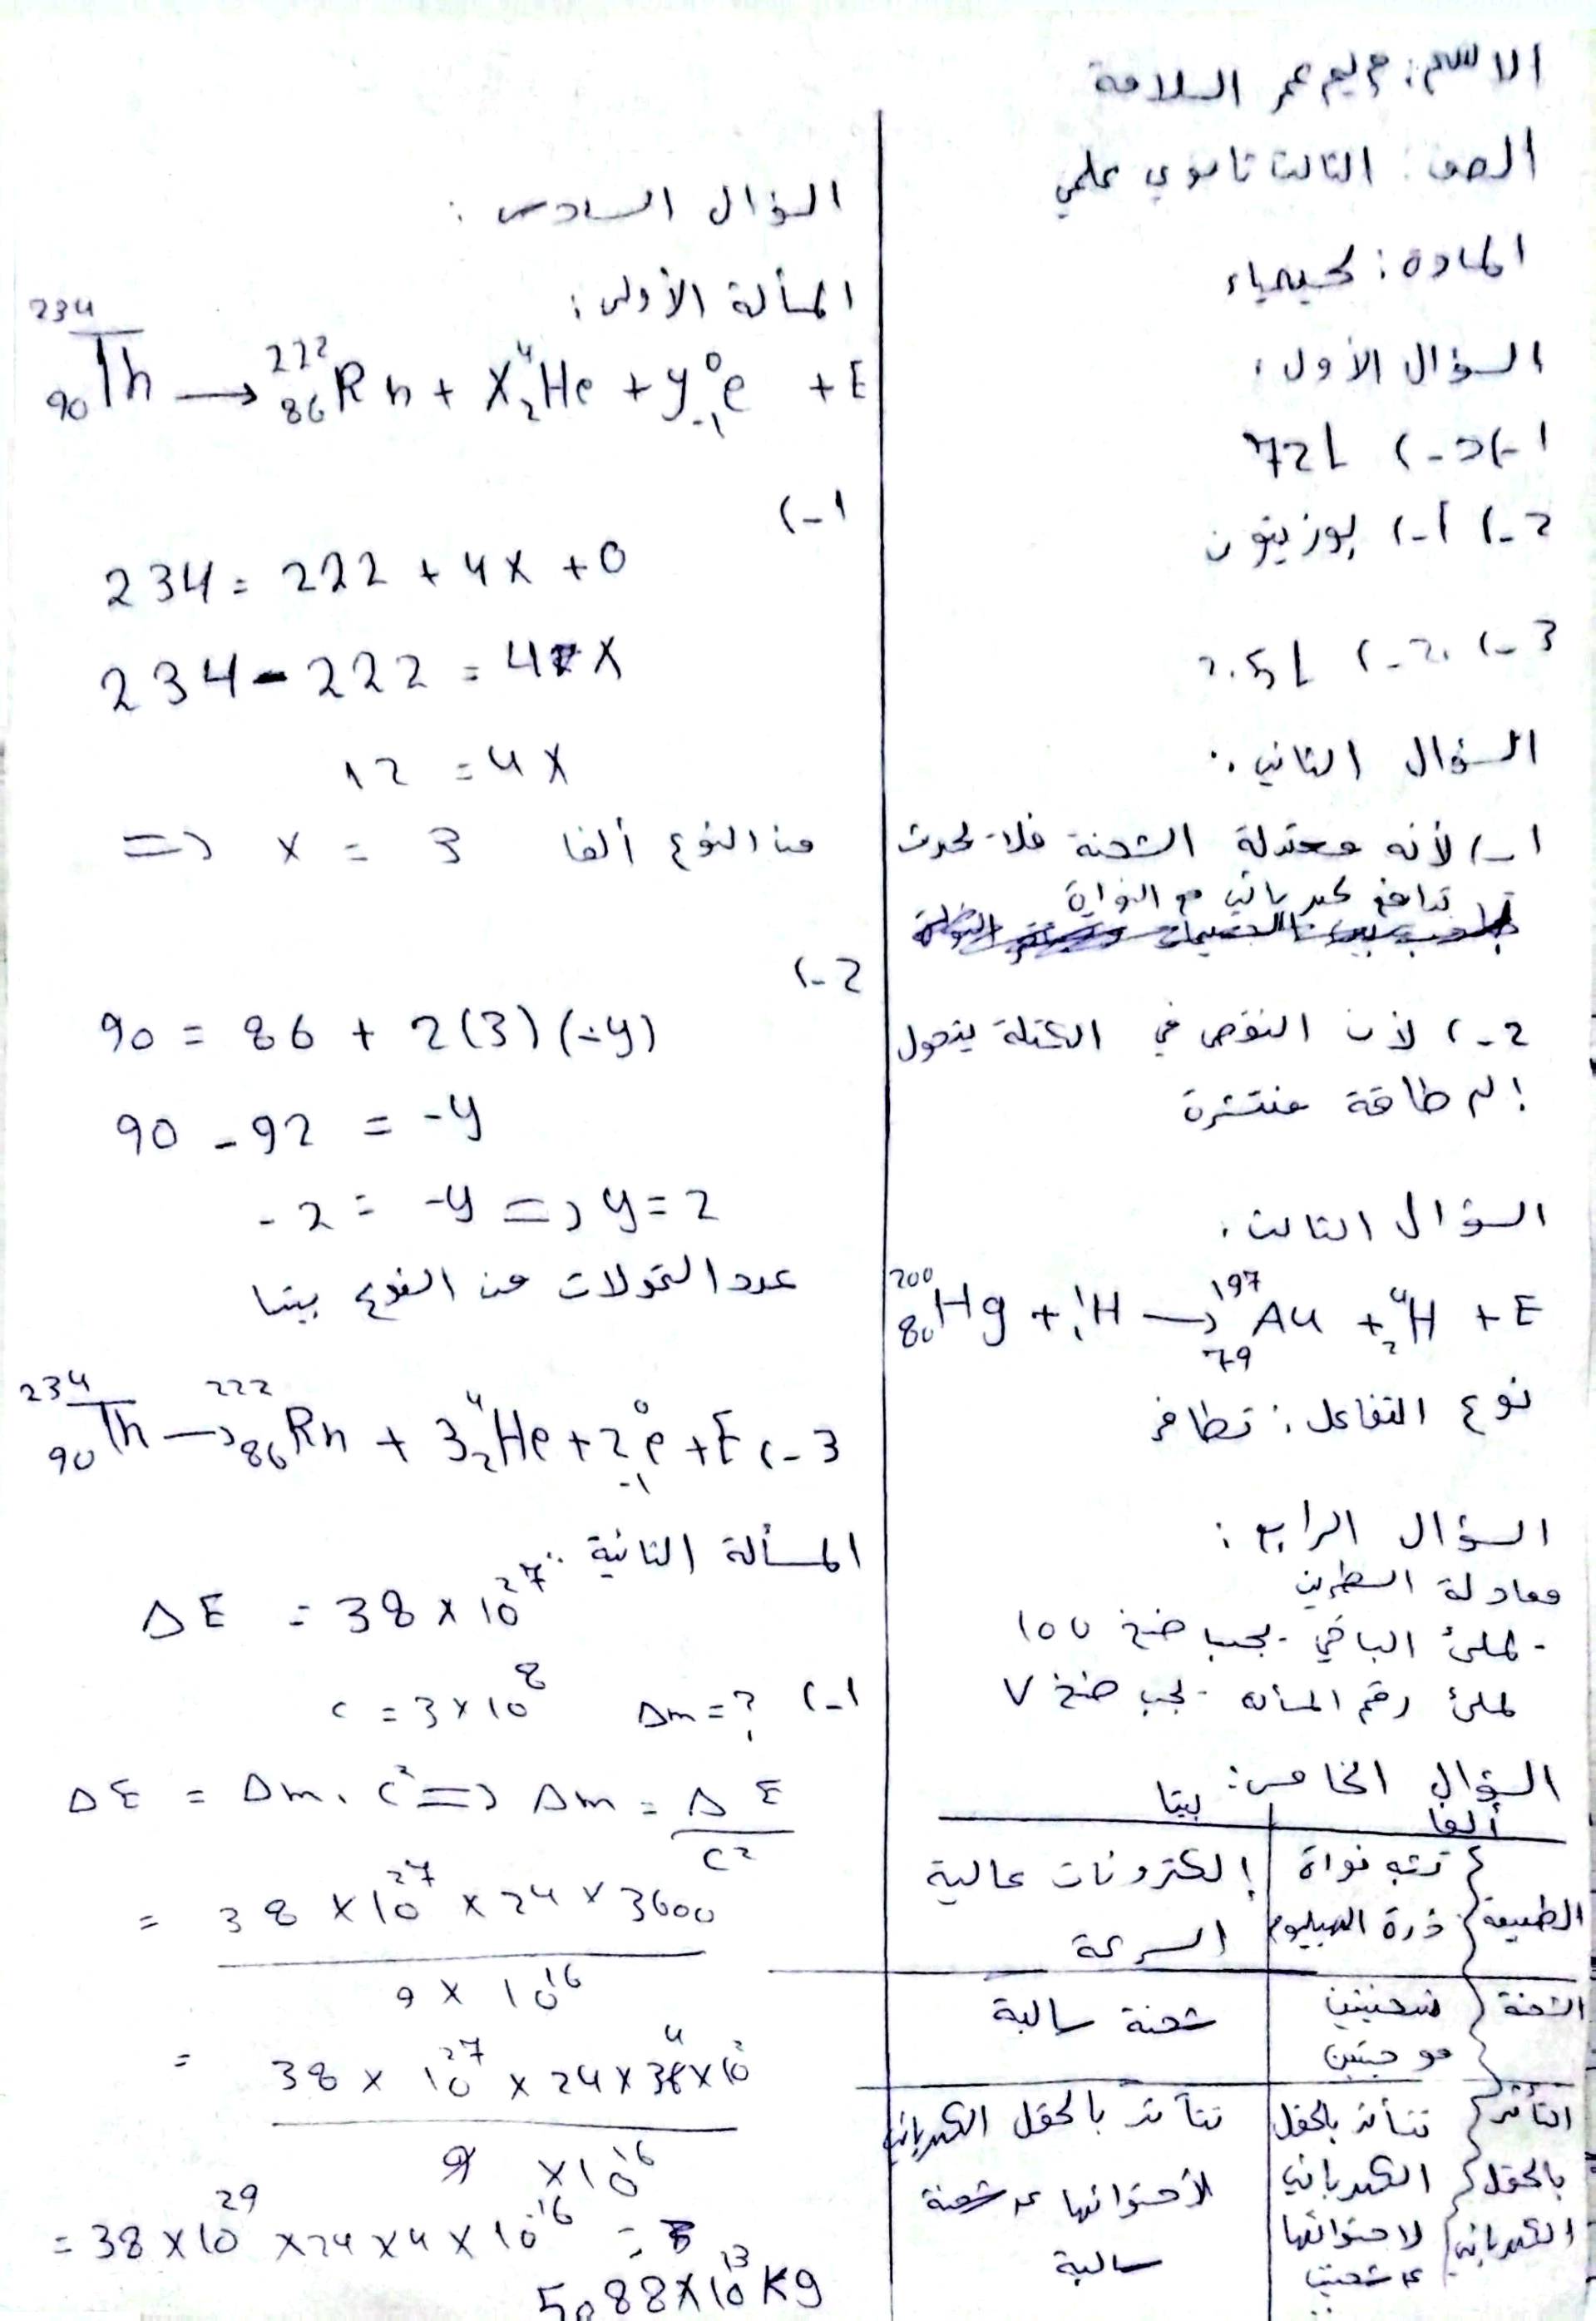 الاسم: مريم عمر السلامة
الصف: الثالث ثانوي علمي
المادة: كيمياء
السؤال الأول:
1-) د-) 72L
2-) أ-) بوزيتون
3-) 2.5L
السؤال الثاني:
1-) لأنه معتدلة الشحنة فلا يحدث
تدافع كهربائي مع النواة
2-) لأن النقص في الكتلة يتحول
إلى طاقة منتشرة
السؤال الثالث:
²⁰⁰₈₀Hg + ¹₁H → ¹⁹⁷₇₉Au + ⁴₂H + E
نوع التفاعل: تطافر
السؤال الرابع:
معادلة السطرين
- لملئ الباقي يجب ضخ
لملئ رقم المسأله يجب ضخ V
السؤال الخامس:
ألفا بيتا
الطبيعة تشبه نواة ذرة الهيليوم إلكترونات عالية السرعة
الشحنة شحنتين موجبتين شحنة سالبة
التأثر بالحقل الكهربائي تتأثر بالحقل الكهربائي لاحتوائها تتأثر بالحقل الكهربائي لأحتوائها شحنة سالبة
السؤال السادس:
المسألة الأولى:
²³⁴₉₀Th → ²²²₈₆Rn + X⁴₂He + y⁰₋₁e + E
1-)
234 = 222 + 4X + 0
234 - 222 = 4X
12 = 4X
=> x = 3 من النوع ألفا
2-)
90 = 86 + 2(3)(-y)
90 - 92 = -y
-2 = -y => y = 2
عدد التحولات من النوع بيتا
3-) ²³⁴₉₀Th → ²²²₈₆Rn + 3⁴₂He + 2⁰₋₁e + E
المسألة الثانية:
ΔE = 38 × 10²⁷
1-) c = 3 × 10⁸ Δm = ?
ΔE = Δm . c² => Δm = ΔE / c²
= 38 × 10²⁷ × 24 × 3600 / 9 × 10¹⁶
= 38 × 10²⁷ × 24 × 36⁴ × 10² / 9 × 10¹⁶
= 38 × 10²⁹ × 24 × 4 × 10⁻¹⁶ =
5.88 × 10¹³ Kg